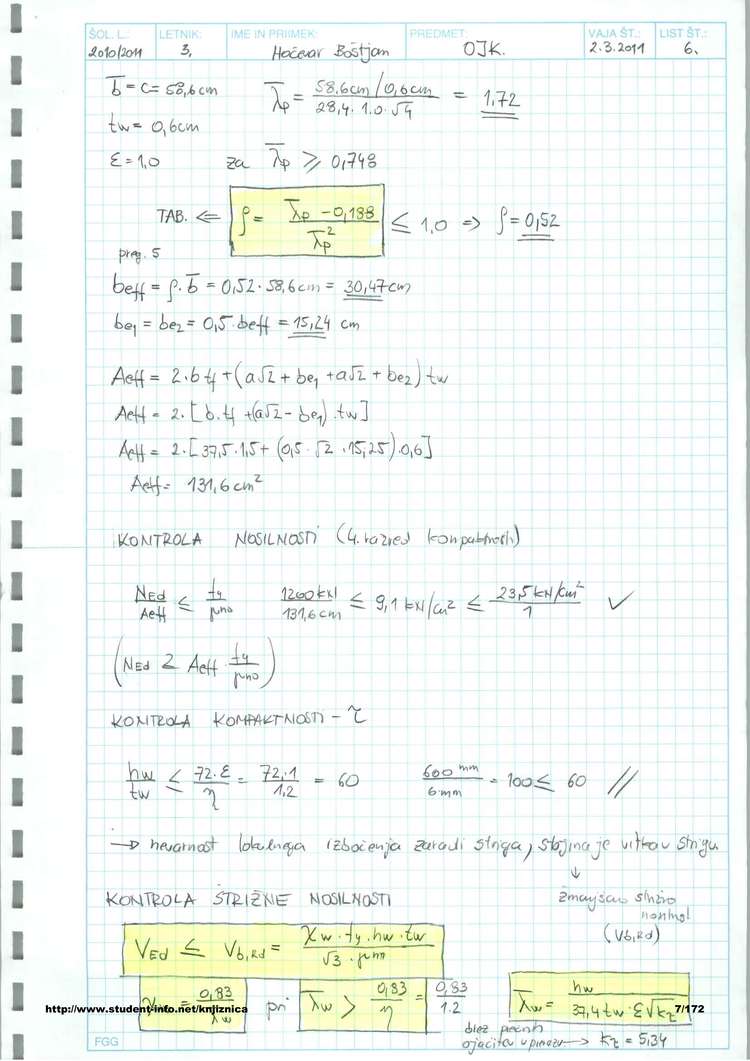 ŠOL. L.: LETNIK: IME IN PRIIMEK: PREDMET: VAJA ŠT.: LIST ŠT.:
2010/2011 3. Hočevar Boštjan OJK. 2.3.2011 6.
b̅ = c = 58,6 cm λ̅p = (58,6cm/0,6cm)/(28,4·1.0·√4) = 1,72
tw = 0,6cm
ε = 1,0 za λ̅p ≥ 0,748
TAB. ⇐ ρ = (λ̅p - 0,188)/λ̅p² ≤ 1,0 ⇒ ρ = 0,52
preg. 5
beff = ρ·b̅ = 0,52·58,6cm = 30,47cm
be1 = be2 = 0,5·beff = 15,24 cm
Aeff = 2·b tf + (a√2 + be1 + a√2 + be2) tw
Aeff = 2·[b·tf + (a√2 - be1)·tw]
Aeff = 2·[37,5·1,5 + (0,5·√2·15,25)·0,6]
Aeff = 131,6cm²
KONTROLA NOSILNOSTI (4. razred kompaktnosti)
NEd/Aeff ≤ fy/γM0 1200kN/131,6cm ≤ 9,1 kN/cm² ≤ 23,5 kN/cm²/1 ✓
(NEd ≥ Aeff · fy/γM0)
KONTROLA KOMPAKTNOSTI - τ
hw/tw ≤ 72·ε/η = 72·1/1.2 = 60 600 mm/6 mm = 100 ≤ 60 //
→ nevarnost lokalnega izbočenja zaradi striga, stojina je vitka v strigu
↓
KONTROLA STRIŽNE NOSILNOSTI
strižno
(Vb,Rd)
VEd ≤ Vb,Rd = (χw·fy·hw·tw)/(√3·γM1)
χw = 0,83/λ̅w pri λ̅w > 0,83/η = 0,83/1.2 λ̅w = hw/(37,4 tw·ε√kτ)
http://www.student-info.net/knjiznica 7/172
brez prečnih
ojačitev → kτ = 5,34
FGG